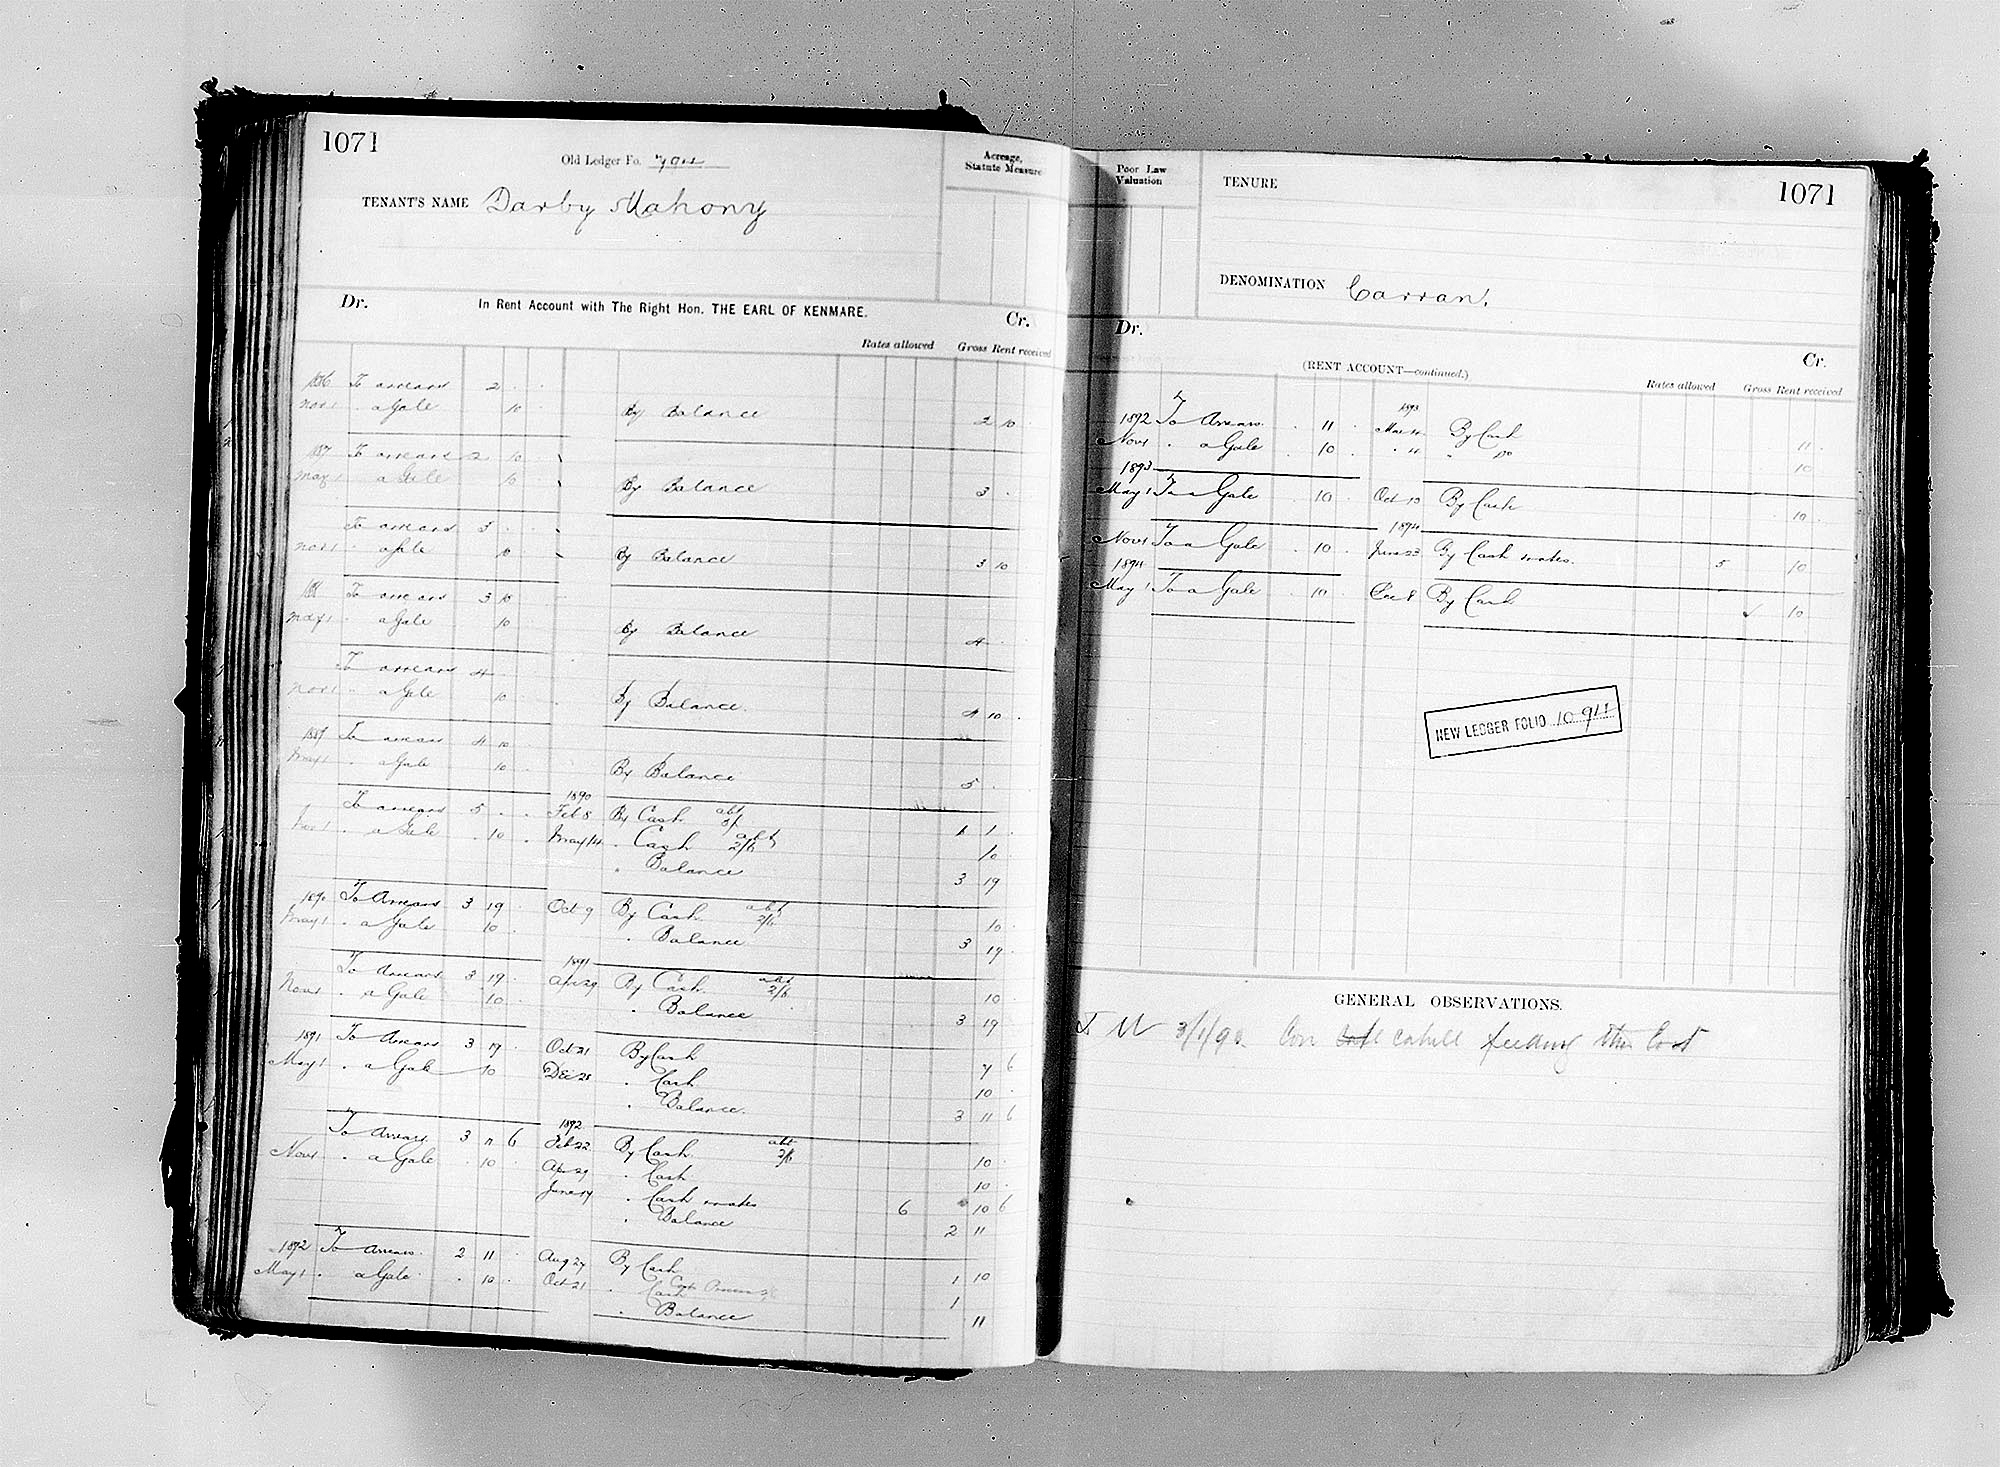 1071
Old Ledger Fo.
Acreage, Statute Measure
TENANT'S NAME Darby Mahony
Dr. In Rent Account with The Right Hon. THE EARL OF KENMARE. Cr.
Rates allowed Gross Rent received
1886 To arrears 2 . .
Nov 1 . a Gale 10 . By Balance 2 10
1887 To arrears 2 10
May 1 . a Gale 10 By Balance 3 .
To arrears 3 . .
Nov 1 . a Gale 10 By Balance 3 10
To arrears 3 10
May 1 . a Gale 10 By Balance 4 .
To arrears 4
Nov 1 . a Gale 10 By Balance. 4 10 .
1889 To arrears 4 10
May 1 . a Gale 10 By Balance 5 .
1890
To arrears 5 . . Feb 8 By Cash abt 5/ 1 1 .
Nov 1 . a Gale . 10 . May 14 . Cash abt 2/6 10
. Balance 3 19
1890 To Arrears 3 19 Oct 9 By Cash abt 2/6 10
May 1 . a Gale 10 . Balance 3 19
1891
To Arrears 3 19 . Apr 29 By Cash abt 2/6 10
Nov 1 . a Gale 10 . Balance 3 19
1891 To Arrears 3 19 Oct 21 By Cash 7 6
May 1 . a Gale 10 Dec 28 . Cash 10 .
. Balance. 3 11 6
1892
To Arrears 3 11 6 Feb 22 By Cash abt 2/6 10
Nov 1 . a Gale . 10 Apr 29 . Cash 10 .
June 17 . Cash & rates 6 10 6
. Balance 2 11
1892 To Arrears. 2 11 Aug 27 By Cash 1 10
May 1 . a Gale . 10 Oct 21 . Cash 1
. Balance 11
Poor Law Valuation
TENURE
1071
DENOMINATION Carran.
Dr. Cr.
(RENT ACCOUNT—continued.)
Rates allowed Gross Rent received
1893
1892 To Arrears . 11 . Mar 4 By Cash 11
Nov 1 . a Gale . 10 . . 4 . Do 10
1893
May 1 To a Gale . 10 . Oct 13 By Cash . 10
1894
Nov 1 To a Gale . 10 . June 23 By Cash & rates. 5 10
1894
May 1 To a Gale . 10 . Dec 8 By Cash ✓ 10
NEW LEDGER FOLIO 10 911
GENERAL OBSERVATIONS.
Con Cahill feeding the